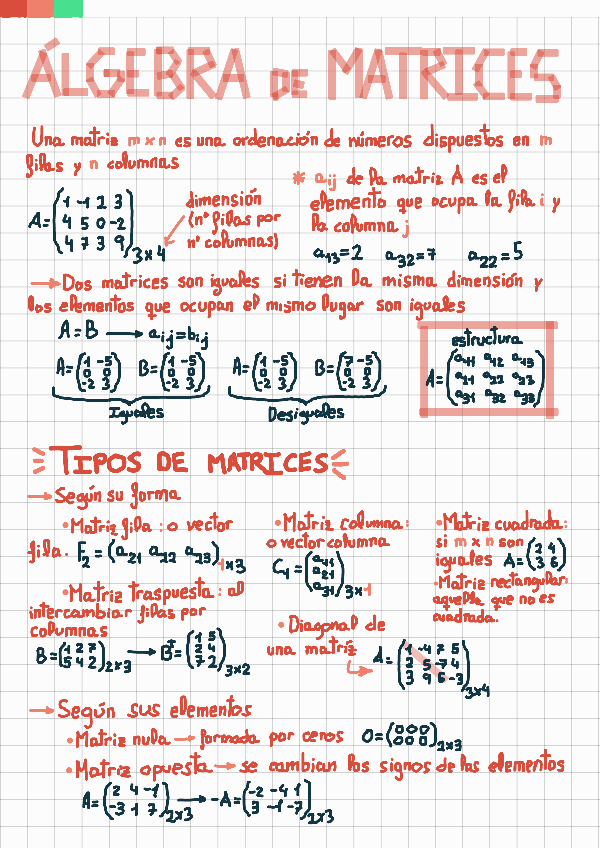 ÁLGEBRA DE MATRICES
Una matriz m x n es una ordenación de números dispuestos en m
filas y n columnas
A=(1 -1 2 3
4 5 0 -2
4 7 3 9)3x4
dimensión
(nº filas por
nº columnas)
* aij de la matriz A es el
elemento que ocupa la fila i y
la columna j
a13=2 a32=7 a22=5
→ Dos matrices son iguales si tienen la misma dimensión y
los elementos que ocupan el mismo lugar son iguales
A=B → aij=bij
A=(1 -5
0 0
-2 3)
B=(1 -5
0 0
-2 3)
Iguales
A=(1 -5
0 0
-2 3)
B=(7 -5
0 0
-2 3)
Desiguales
estructura
A=(a11 a12 a13
a21 a22 a23
a31 a32 a33)
TIPOS DE MATRICES
→ Según su forma
•Matriz fila: o vector
fila. F2=(a21 a22 a23)1x3
•Matriz columna:
o vector columna
C1=(a11
a21
a31)3x1
•Matriz cuadrada:
si m x n son
iguales A=(2 4
3 6)
•Matriz rectangular:
aquella que no es
cuadrada.
•Matriz traspuesta: al
intercambiar filas por
columnas
B=(1 2 7
5 4 2)2x3 → Bt=(1 5
2 4
7 2)3x2
•Diagonal de
una matriz
A=(1 -4 7 5
2 5 -7 4
3 9 6 -3)3x4
→ Según sus elementos
•Matriz nula → formada por ceros O=(0 0 0
0 0 0)2x3
•Matriz opuesta → se cambian los signos de las elementos
A=(2 4 -1
-3 1 7)2x3 → -A=(-2 -4 1
3 -1 -7)2x3